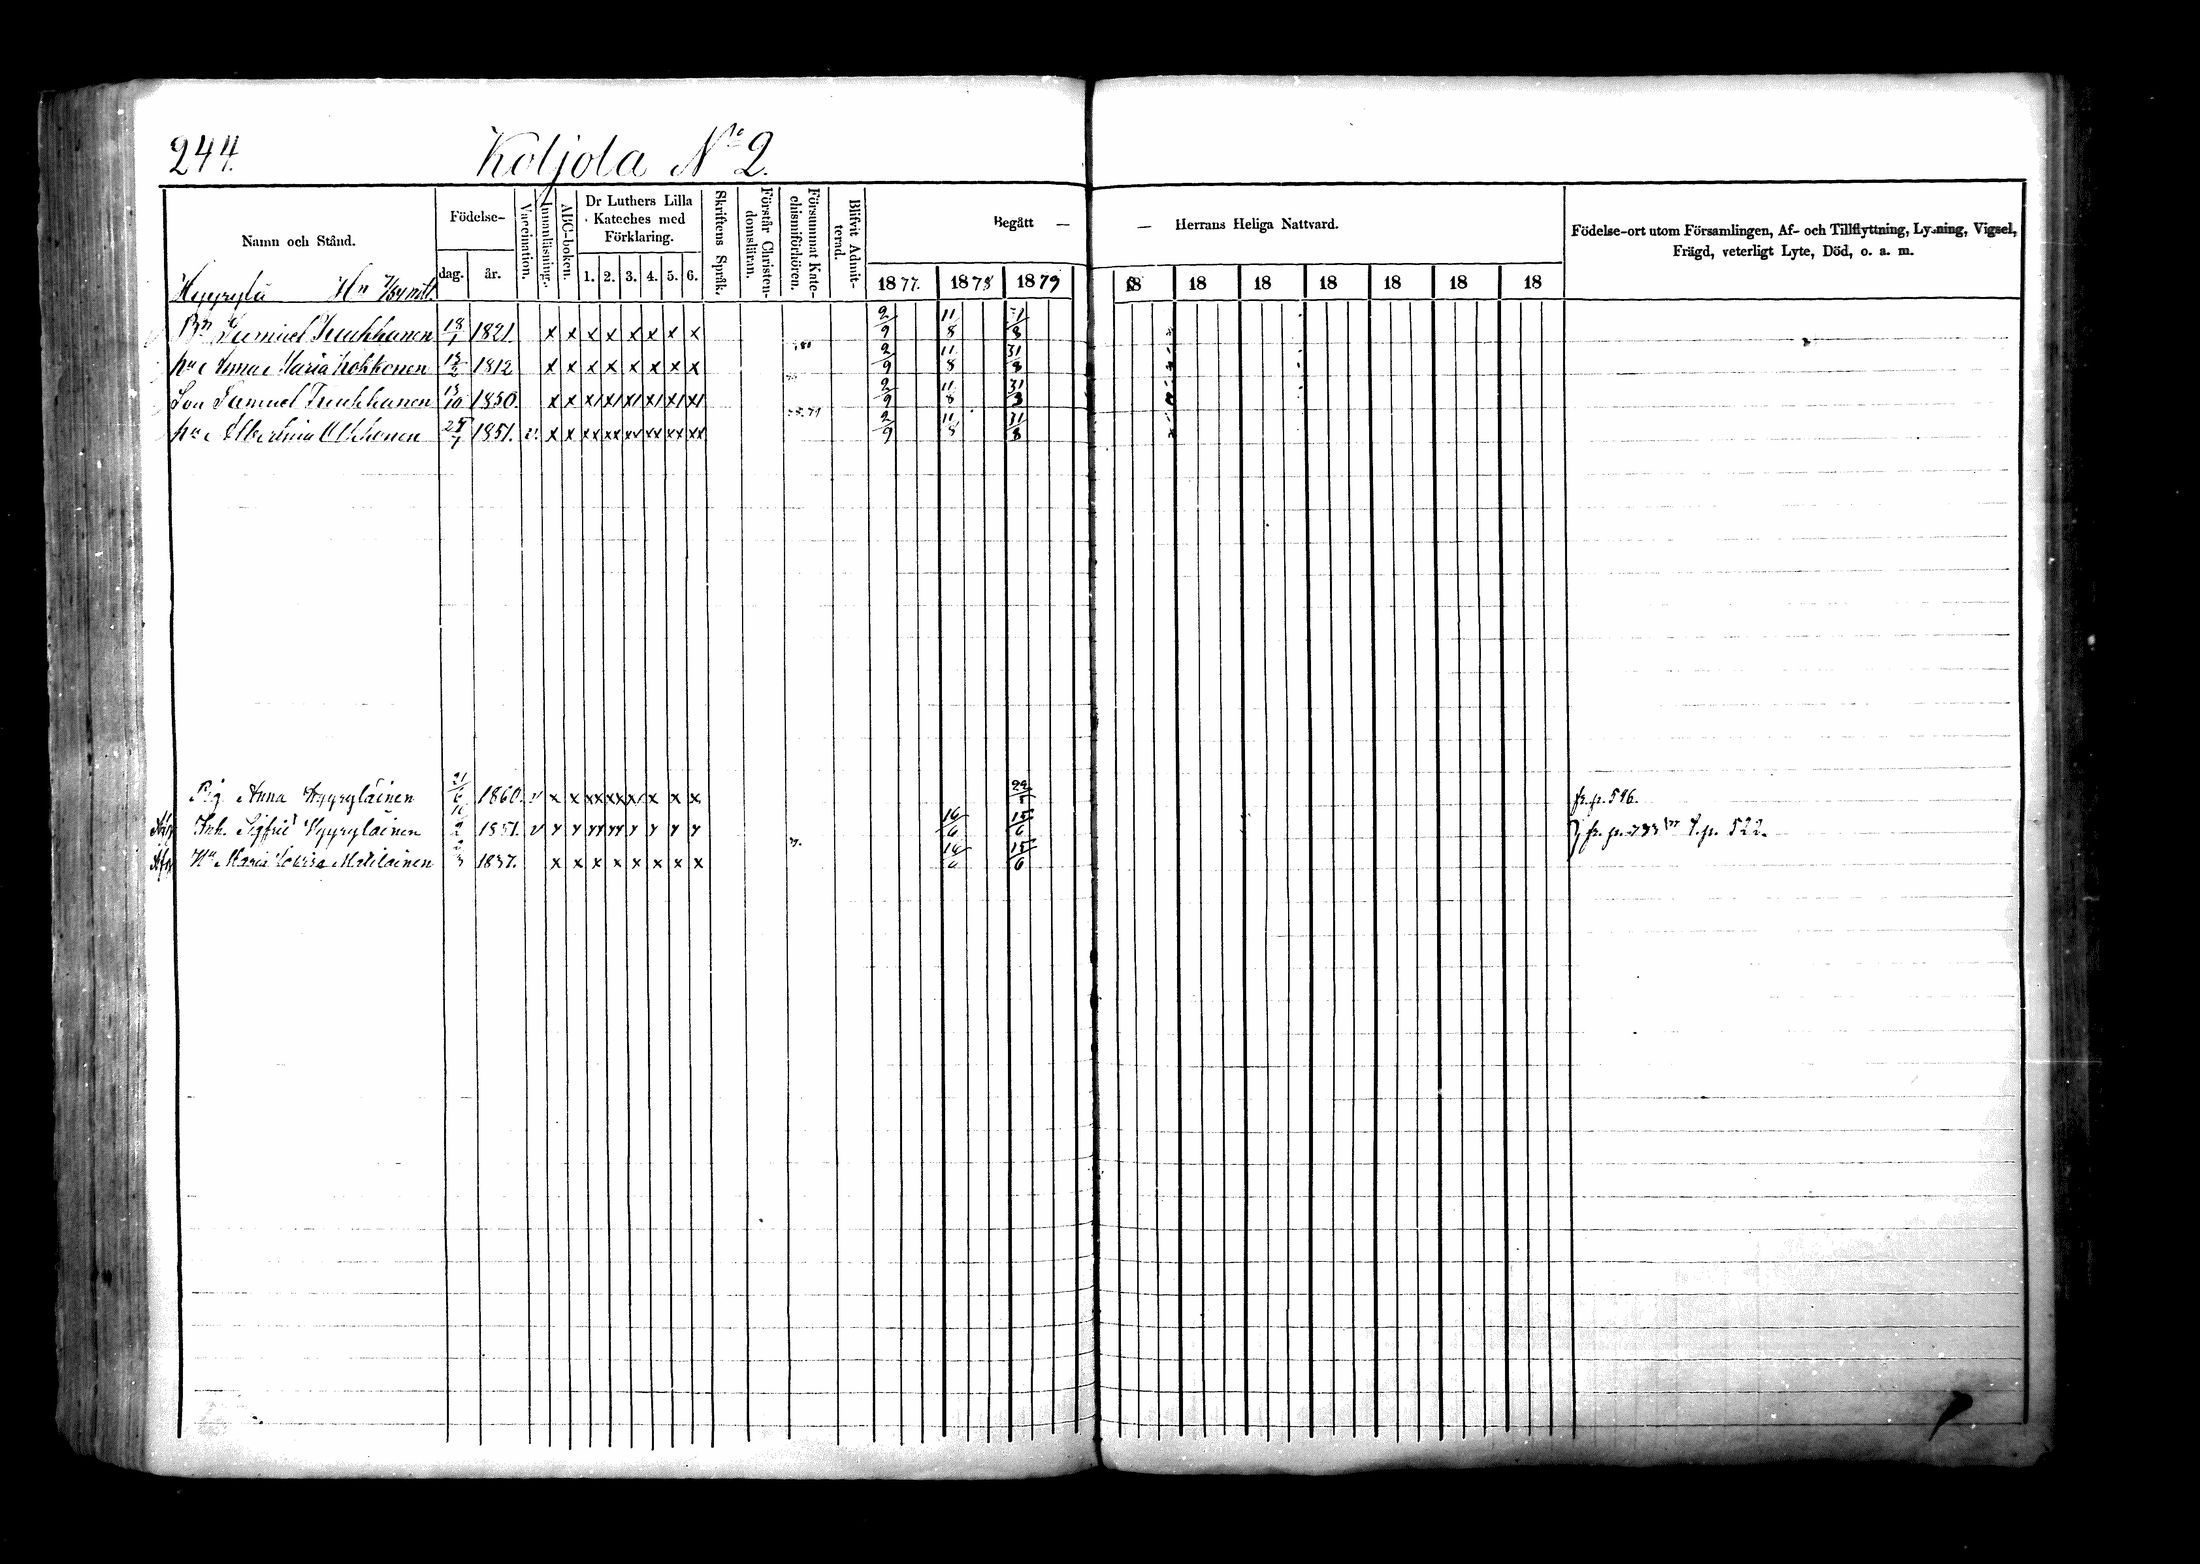 244.
Koljola No 2.
Namn och Stånd.
Födelse-
dag.
år.
Vaccination.
Innanläsning.
ABC-boken.
Dr Luthers Lilla
Kateches med
Förklaring.
1. 2. 3. 4. 5. 6.
Skriftens Språk.
Förstår Christen-
domsläran.
Försummat Kate-
chismiförhören.
Blifvit Admit-
terad.
Begått —
— Herrans Heliga Nattvard.
1877. 1878 1879
18 18 18 18 18 18 18
Födelse-ort utom Församlingen, Af- och Tillflyttning, Lysning, Vigsel,
Frägd, veterligt Lyte, Död, o. a. m.
Hyyrylä Hn
Samuel 1821. x x x x x x x x 2/9 11/8
hu Anna Maria Kokkonen 1812 x x x x x x x x 2/9 11/8 31/8
Son Samuel 1850. x x 2/9 11/8 31/8
hu Albertina 1851. x x xx xx xx xx xx xx 2/9 11/8 31/8
Pig. Anna Hyyryläinen 1860. x x xx xx x x x x fr. p. 596.
Inh. Sigfrid Hyyryläinen 1851. 16/6 15/6 fr. p. T. p. 522.
Hu Maria Lovisa Matilainen 1837. x x x x x x x x 16/6 15/6